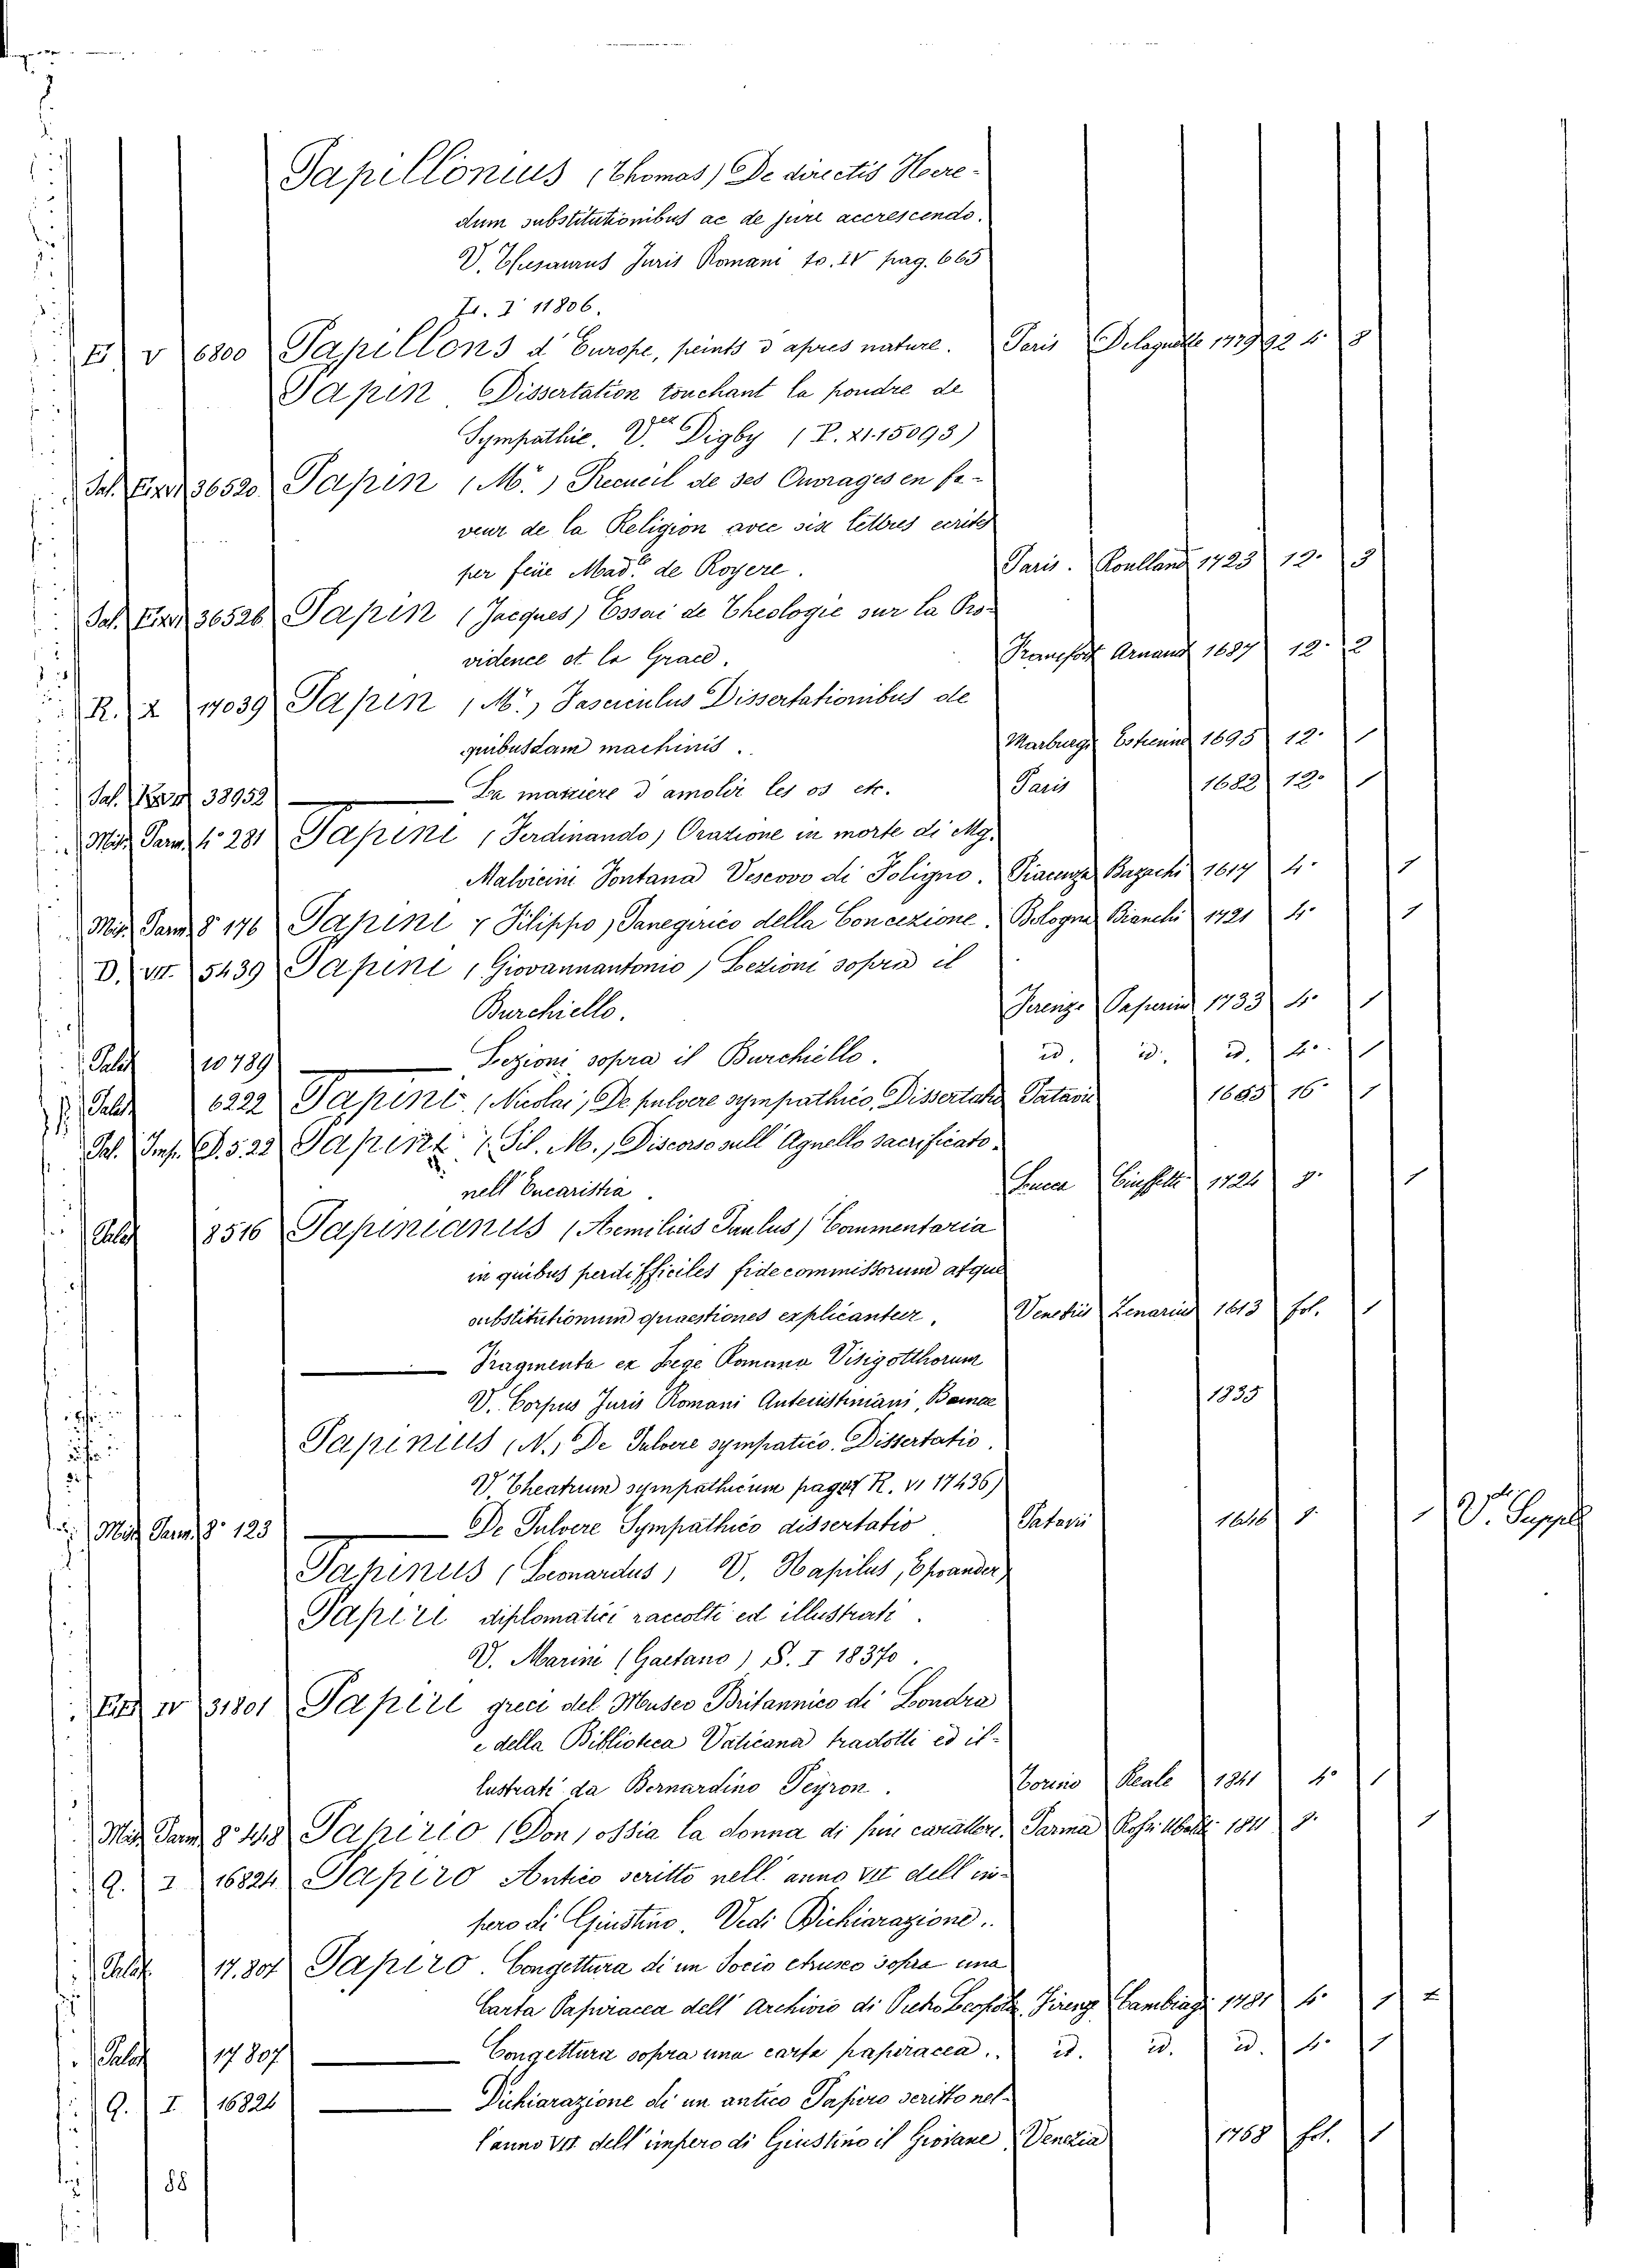 Papillonius (Thomas) De directis Heere-
dum substitutionibus ac de jure accrescendo.
V. Thesaurus Juris Romani to. IV pag. 665
I 11806.
V 6800 Papillons d'Europe, peints d'apres nature. Paris Delaguette 1779 92 4° 8
Papin, Dissertation touchant la poudre de
Sympathie. V. Digby (P. XI. 15093)
36520 Papin (M.r) Recueil de ses Ouvrages en fa-
veur de la Religion avec six lettres ecrites
per feüe Mad.e de Royere. Paris. Roulland 1723 12° 3
36526 Papin (Jacques) Essai de Theologie sur la Pro-
vidence et la Grace. Francfort Arnaud 1687 12° 2
R. X 17039 Papin (M.r) Fasciculus Dissertationibus de
quibusdam machinis. Marburgi 1695 12° 1
38952 ——— La maniere d'amolir les os etc. Paris 1682 12° 1
Mis. Parm. 4° 281 Papini (Ferdinando) Orazione in morte di Mg.
Malvicini Fontana Vescovo di Foligno. Piacenza Bazachi 1617 4° 1
Mis. Parm. 8° 176 Papini (Filippo) Panegirico della Concezione. Bologna Bianchi 1721 4° 1
D. VII. 5439 Papini (Giovannantonio) Lezioni sopra il
Burchiello. Firenze Paperini 1733 4° 1
Palat 10789 ——— Lezioni sopra il Burchiello. id. id. id. 4° 1
Palat 6222 Papini (Nicolai) De pulvere sympathico, Dissertatio Patavii 16° 1
5.22 Papini (Fil. M.) Discorso sull'Agnello sacrificato
nell'Eucaristia. Lucca 1724 8° 1
Palat 8516 Papinianus (Aemilius Paulus) Commentaria
in quibus perdifficiles fidecommissorum atque
substitutionum quaestiones explicantur. Venetiis Zenarius 1613 fol. 1
——— Fragmenta ex Lege Romana Visigotthorum
V. Corpus Juris Romani Anteiustiniani, Bonnae 1835
Papinius (N.) De Pulvere sympatico. Dissertatio.
V. Theatrum sympathicum R. VI 17436)
Mis. Parm. 8° 123 ——— De Pulvere Sympathico dissertatio Patavii 8° 1 V. Suppl
Papinus (Leonardus) V. Hapilus, Evander
Papiri diplomatici raccolti ed illustrati.
V. Marini (Gaetano) S. I 18370.
IV 31801 Papiri greci del Museo Britannico di Londra
e della Biblioteca Vaticana tradotti ed il-
lustrati da Bernardino Peyron. Torino Reale 1841 4° 1
Mis. Parm. 8° 418 Papirio (Don) ossia la donna di più carattere. Parma 8° 1
Q. I 16824 Papiro Antico scritto nell'anno VII dell'im-
pero di Giustino. Vedi Dichiarazione.
Palat. 17.807 Papiro. Congettura di un Socio etrusco sopra una
Carta Papiracea dell'Archivio di Pietro Leopoldo. Firenze Cambiagi 1781 4° 1
Palat 17807 ——— Congettura sopra una carta papiracea. id. id. id. 4° 1
Q. I. 16824 ——— Dichiarazione di un antico Papiro scritto nel-
l'anno VII dell'impero di Giustino il Giovane Venezia 1768 fol. 1
88